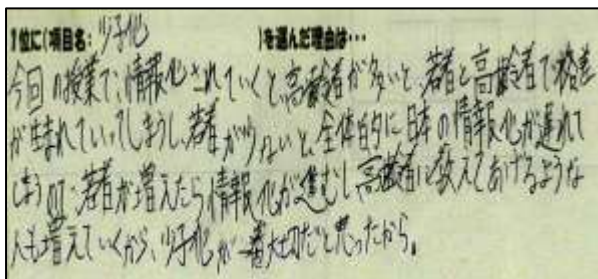 1位に(項目名: 少子化 )を選んだ理由は…
今回の授業で、情報化されていくと、高齢者が多いと、若者と高齢者で格差
が生まれていってしまうし、若者が少ないと、全体的に日本の情報化が遅れて
しまうので、若者が増えたら情報化が進むし、高齢者に教えてあげるような
人も増えていくから、少子化が一番大切だと思ったから。